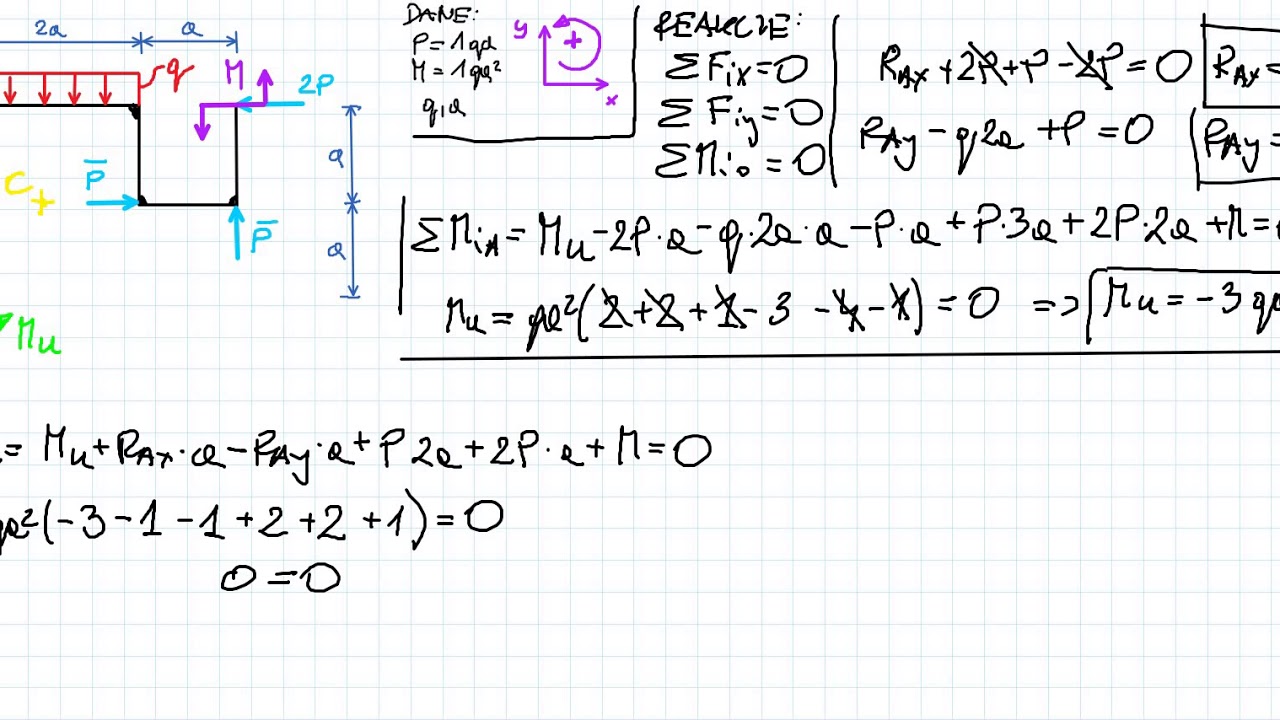 2a a
q
M
2P
P̅
C
P̅
a
a
Mu
DANE:
P=1qa
M=1qa²
q,a
y
+
x
REAKCJE:
ΣFix=0
ΣFiy=0
ΣMio=0
RAx+2P+P-2P=0
RAx=
RAy-q2a+P=0
RAy=
ΣMiA=Mu-2P·a-q·2a·a-P·a+P·3a+2P·2a+M=
Mu=qa²(2+2+1-3-4-1)=0 => Mu=-3qa
= Mu+RAx·a-RAy·a+P2a+2P·a+M=0
qa²(-3-1-1+2+2+1)=0
0=0